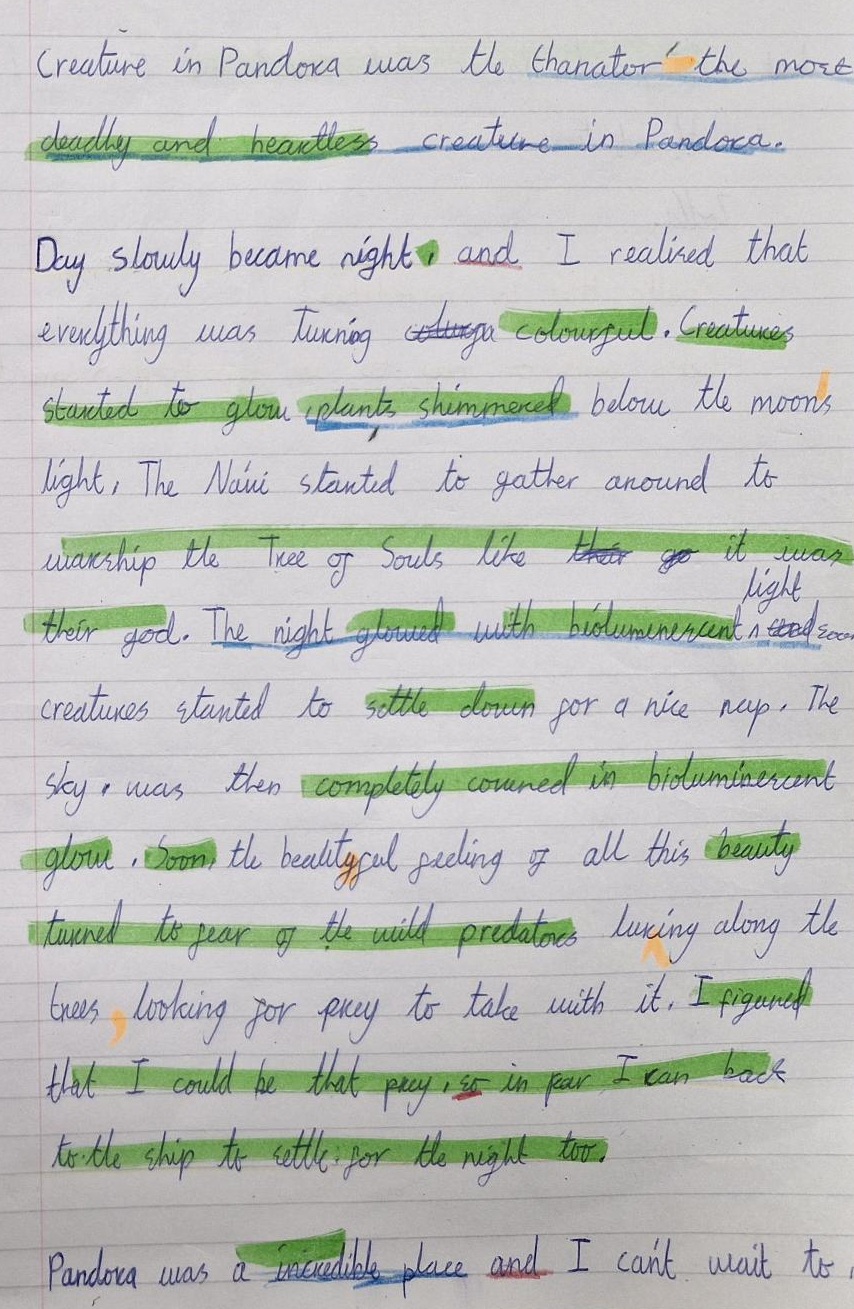 Creature in Pandora was the thanator - the most
deadly and heartless creature in Pandora.
Day slowly became night, and I realised that
everything was turning colourful. Creatures
started to glow, plants shimmered below the moon's
light, The Navi started to gather around to
warship the Tree of Souls like their go it was
their god. The night glowed with bioluminescent light and soon
creatures started to settle down for a nice nap. The
sky, was then completely covered in bioluminescent
glow. Soon, the beautyful feeling of all this beauty
turned to fear of the wild predators luring along the
trees, looking for prey to take with it. I figured
that I could be that prey, so in fear I ran back
to the ship to settle for the night too.
Pandora was a incredible place and I can't wait to